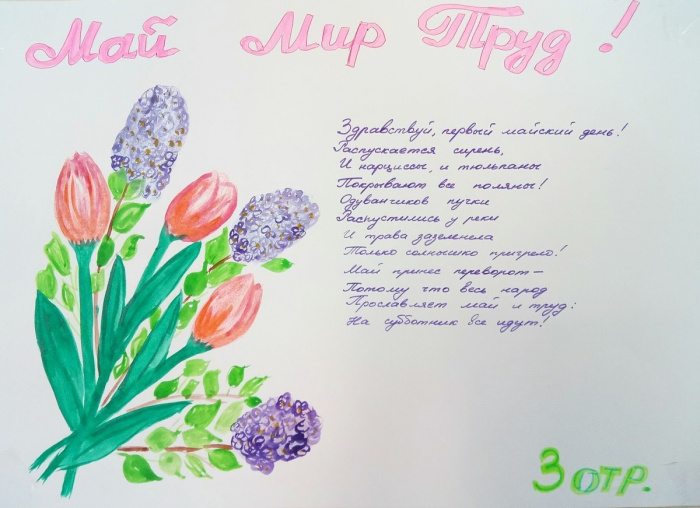 Май Мир Труд !
Здравствуй, первый майский день!
Распускается сирень,
И нарциссы, и тюльпаны
Покрывают все поляны!
Одуванчиков пучки
Распустились у реки
И трава зазеленела
Только солнышко пригрело!
Май принес переворот –
Потому что весь народ
Прославляет май и труд:
На субботник все идут!
3 отр.